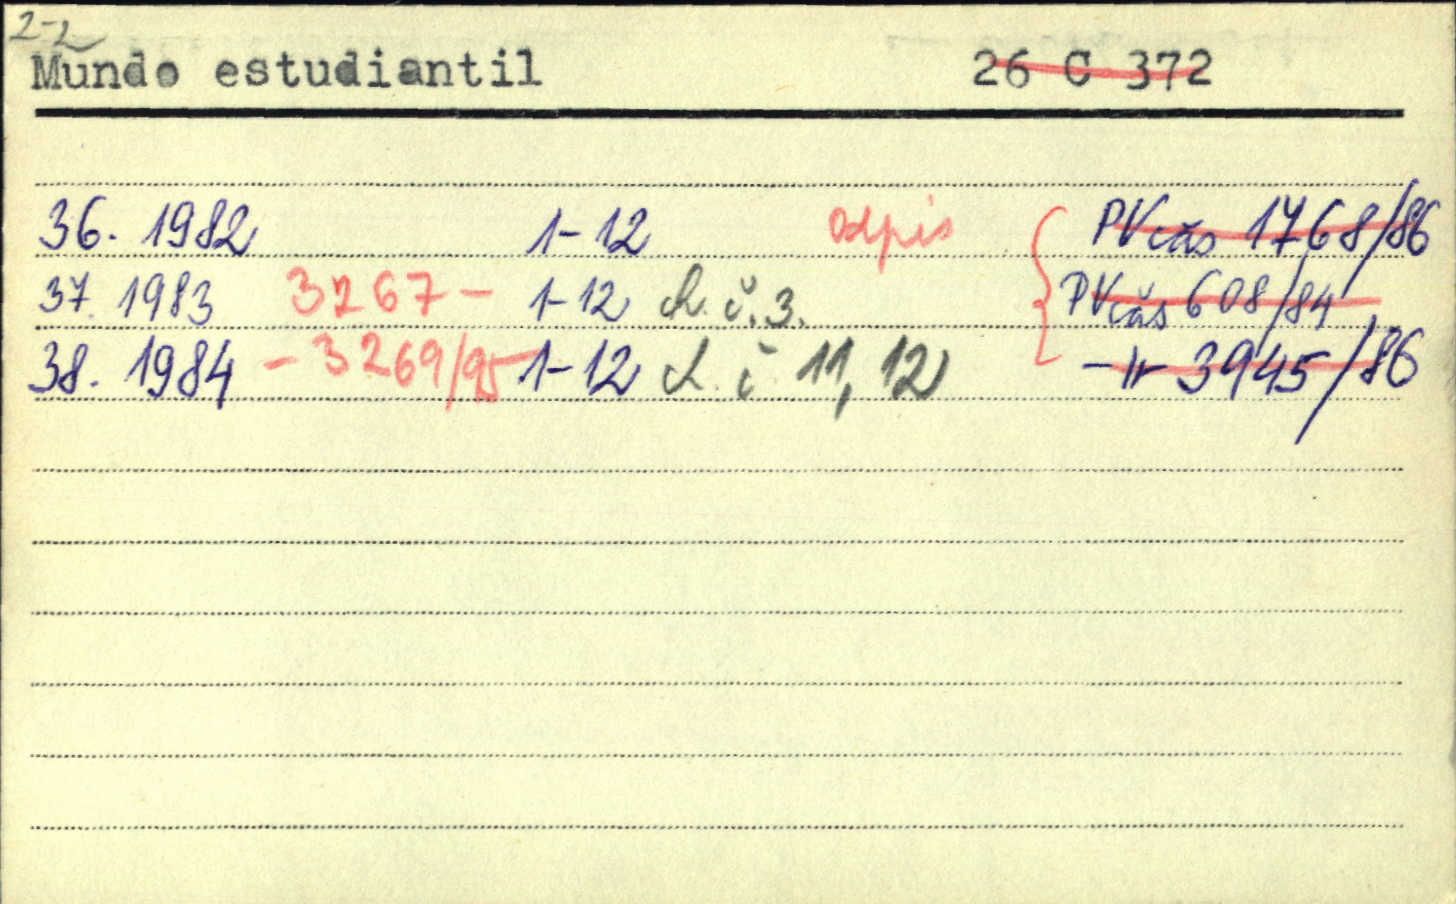 2-2
Mundo estudiantil 26 C 372
36. 1982 1-12 odpis PVčas 1768/86
37. 1983 3267- 1-12 ch. č. 3. PVčas 608/84
38. 1984 -3269/95 1-12 ch. č 11, 12 -"- 3945/86